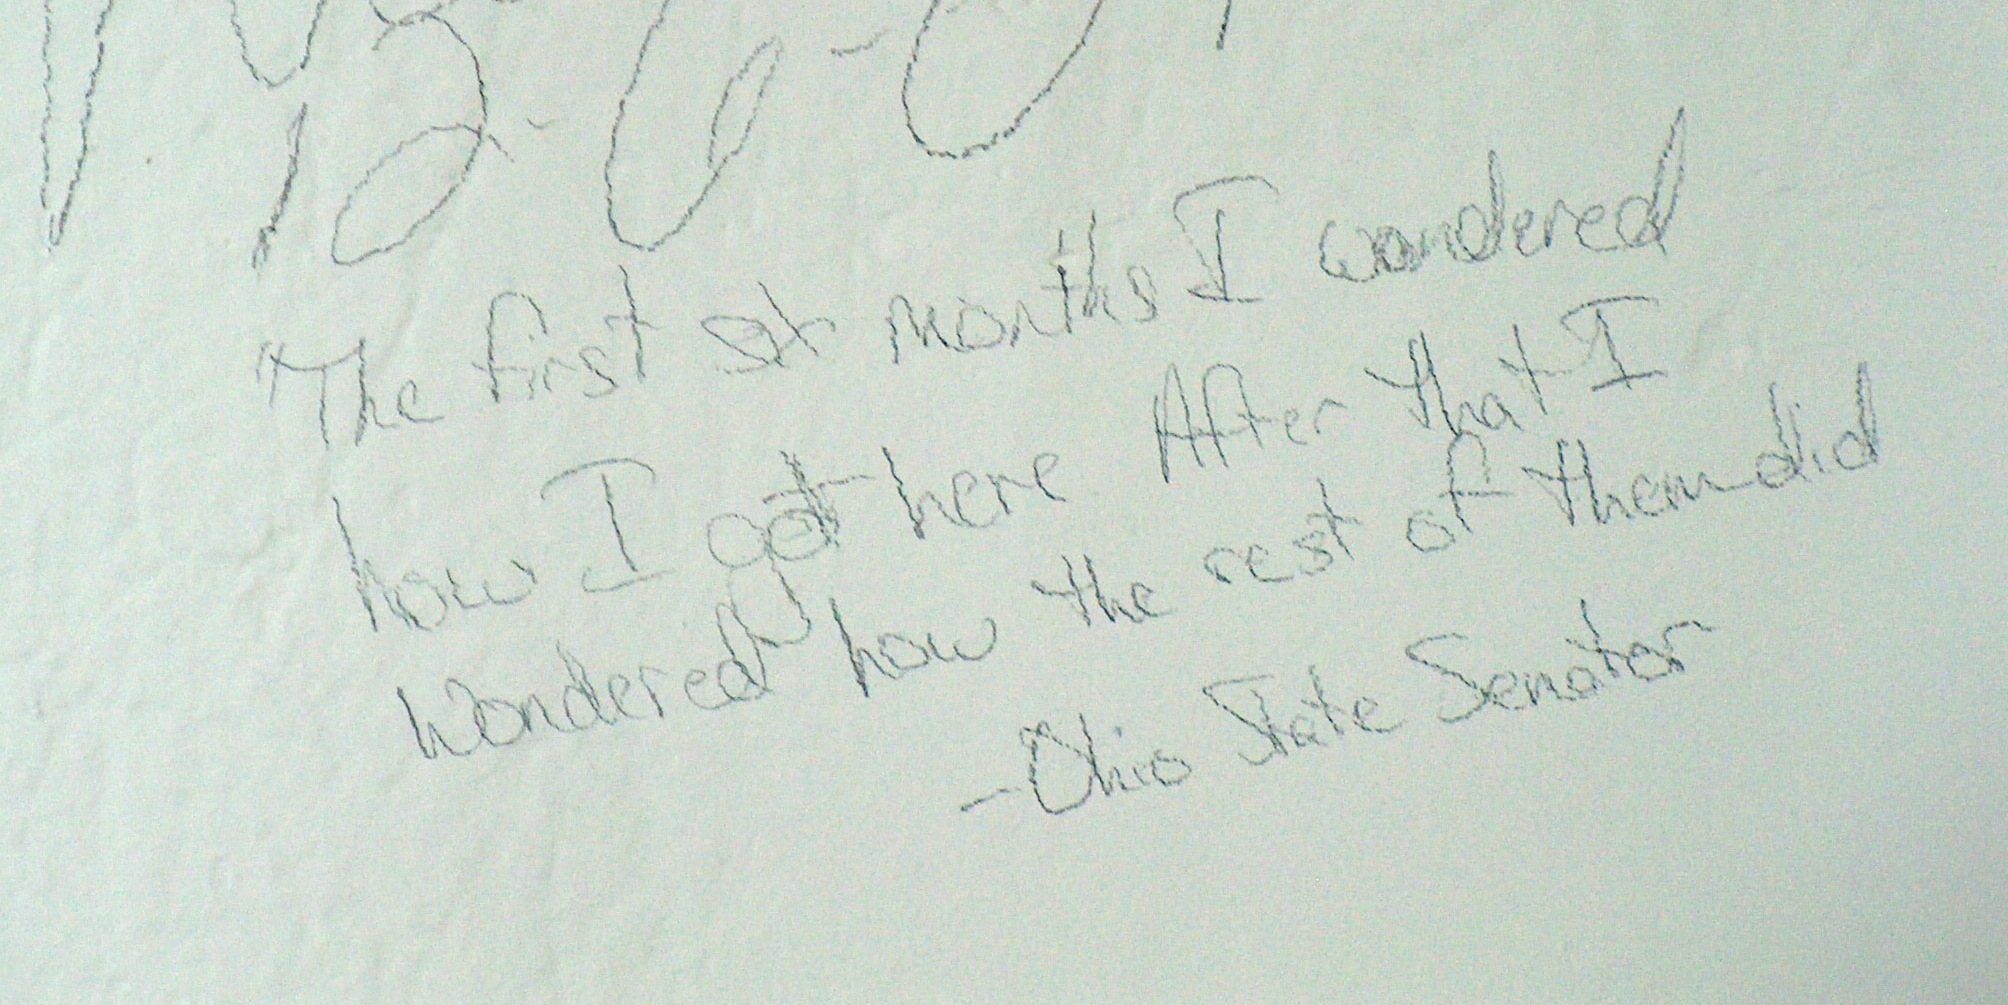 "The first six months I wondered
how I got here After that I
Wondered how the rest of them did
- Ohio State Senator